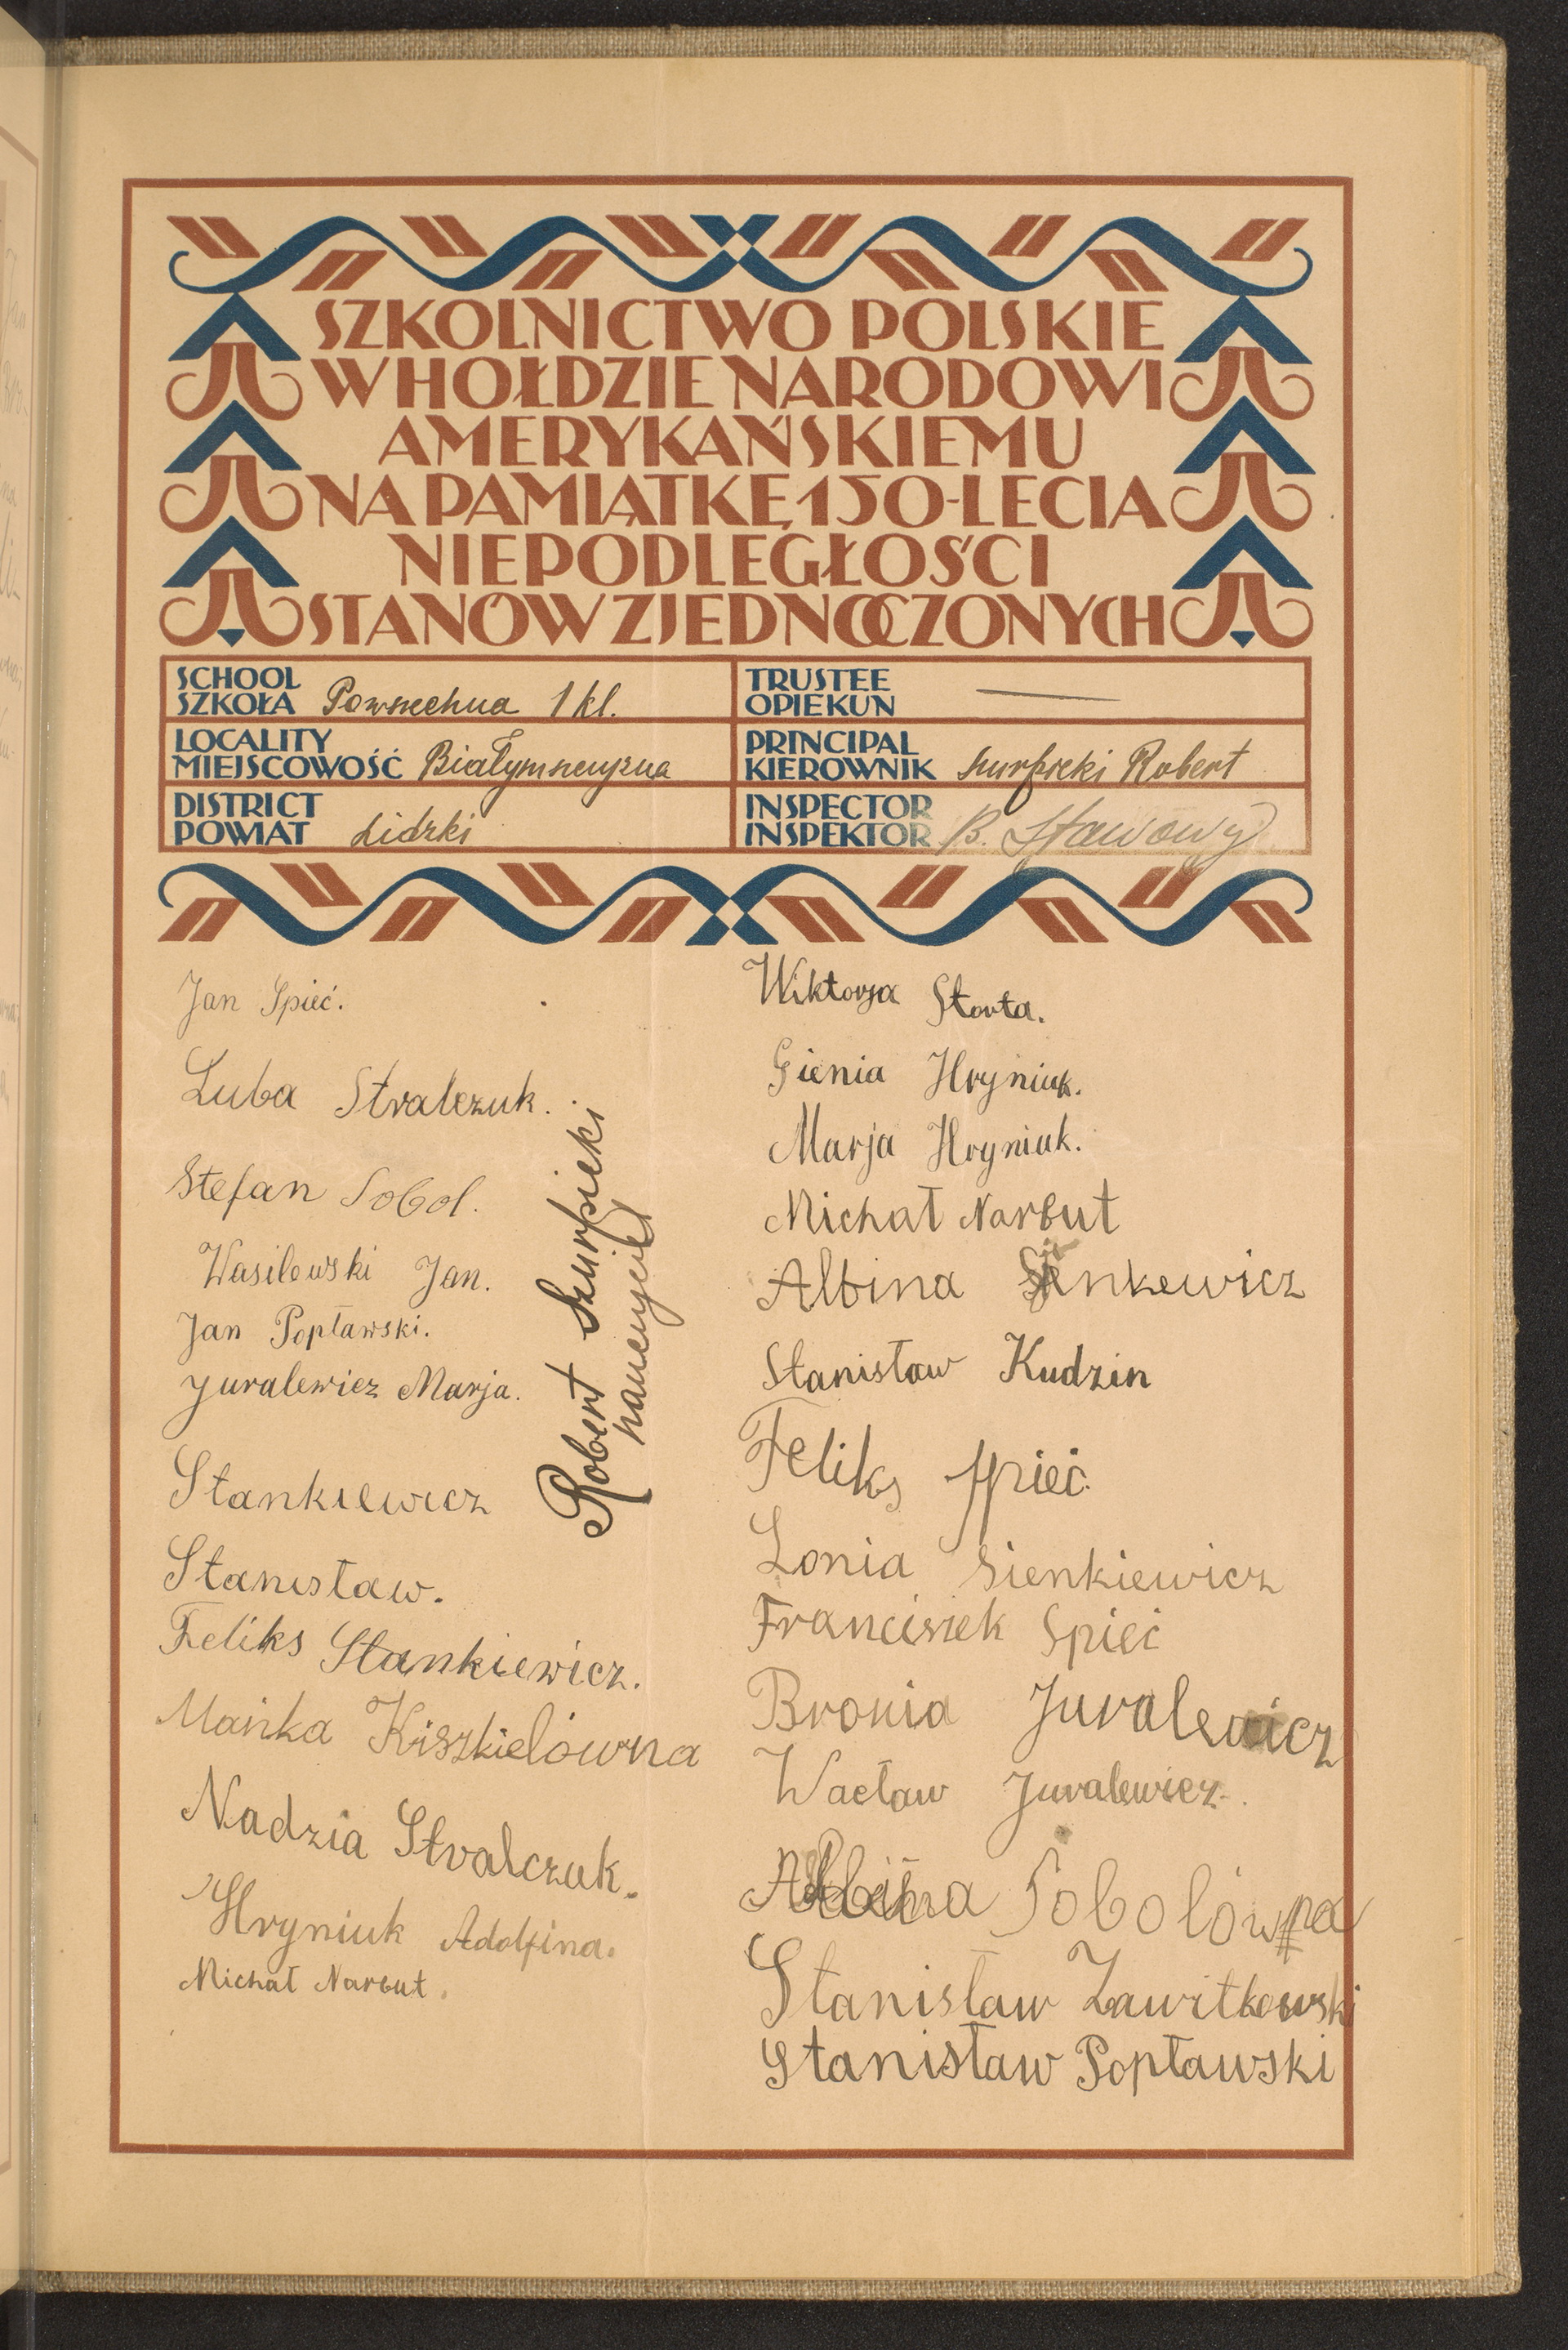 SZKOLNICTWO POLSKIE
W HOŁDZIE NARODOWI
AMERYKAŃSKIEMU
NA PAMIĄTKĘ 150-LECIA
NIEPODLEGŁOŚCI
STANÓW ZJEDNOCZONYCH
SCHOOL
SZKOŁA Powszechna 1 kl.
LOCALITY
MIEJSCOWOŚĆ
DISTRICT
POWIAT Lidzki
TRUSTEE
OPIEKUN —
PRINCIPAL
KIEROWNIK Szurpicki Robert
INSPECTOR
INSPEKTOR B. Stawowy
Jan Spieć.
Luba Stralczuk.
Stefan Sobol.
Wasilewski Jan.
Jan Popławski.
Juralewicz Marja.
Stankiewicz
Stanisław.
Feliks Stankiewicz.
Mańka Kiszkielówna
Nadzia Stralczuk.
Hryniuk Adolfina.
Michał Narbut.
Robert Szurpicki
nauczyciel
Wiktorja Storta.
Gienia Hryniuk.
Marja Hryniuk.
Michał Narbut
Albina Sienkewicz
Stanisław Kudzin
Feliks Spieć
Lonia Sienkiewicz
Franciszek Spieć
Bronia Juralewicz
Wacław Juralewicz.
Sobolówna
Stanisław Zawitkowski
Stanisław Popławski